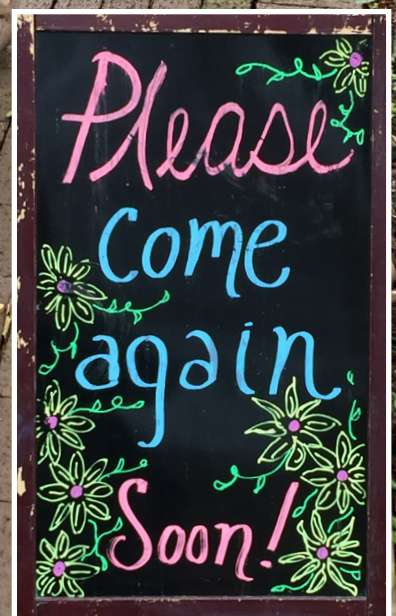 Please
Come
again
Soon!